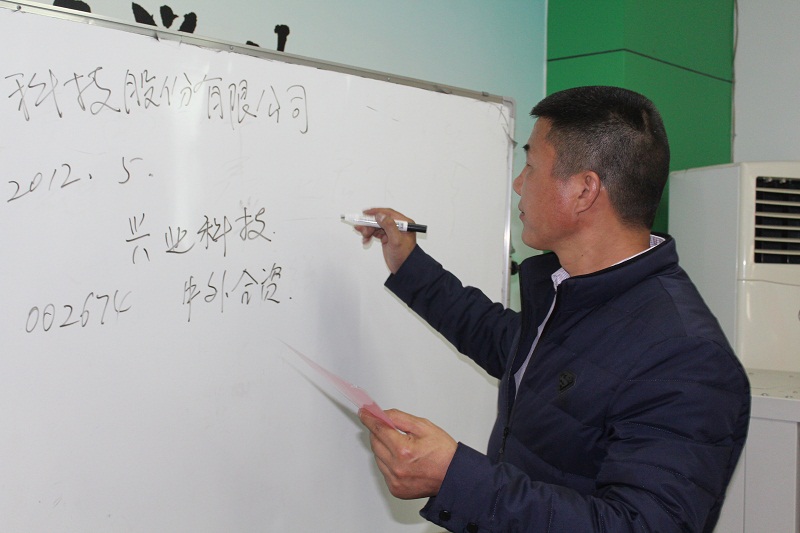 科技股份有限公司
2012.5.
兴业科技.
002674 中外合资.